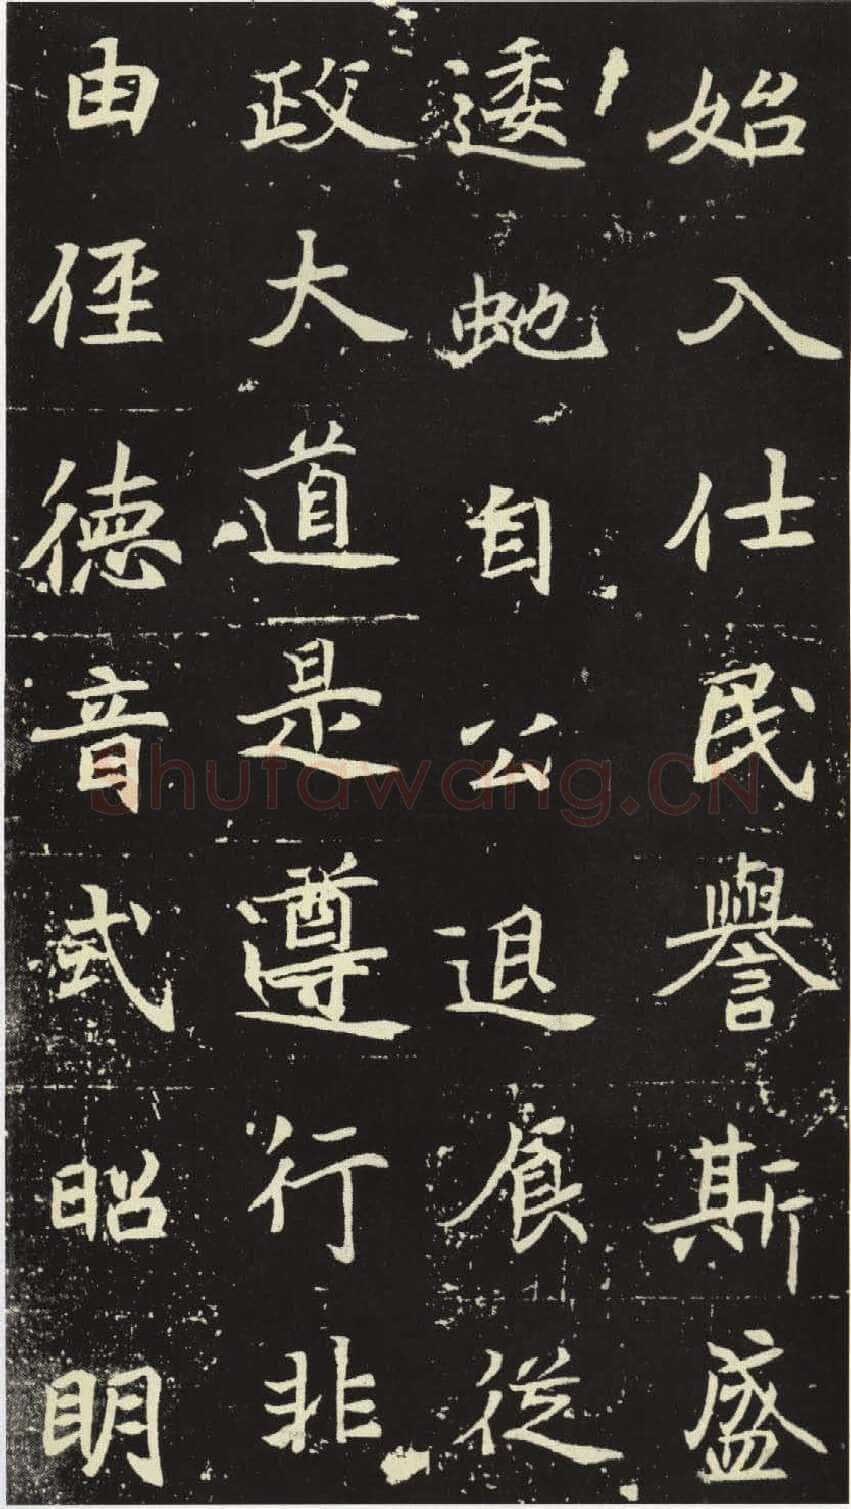 始入仕民譽斯盛
逶虵自公退食從
政大道是遵行非
由俓德音式昭明
shufawang.CN